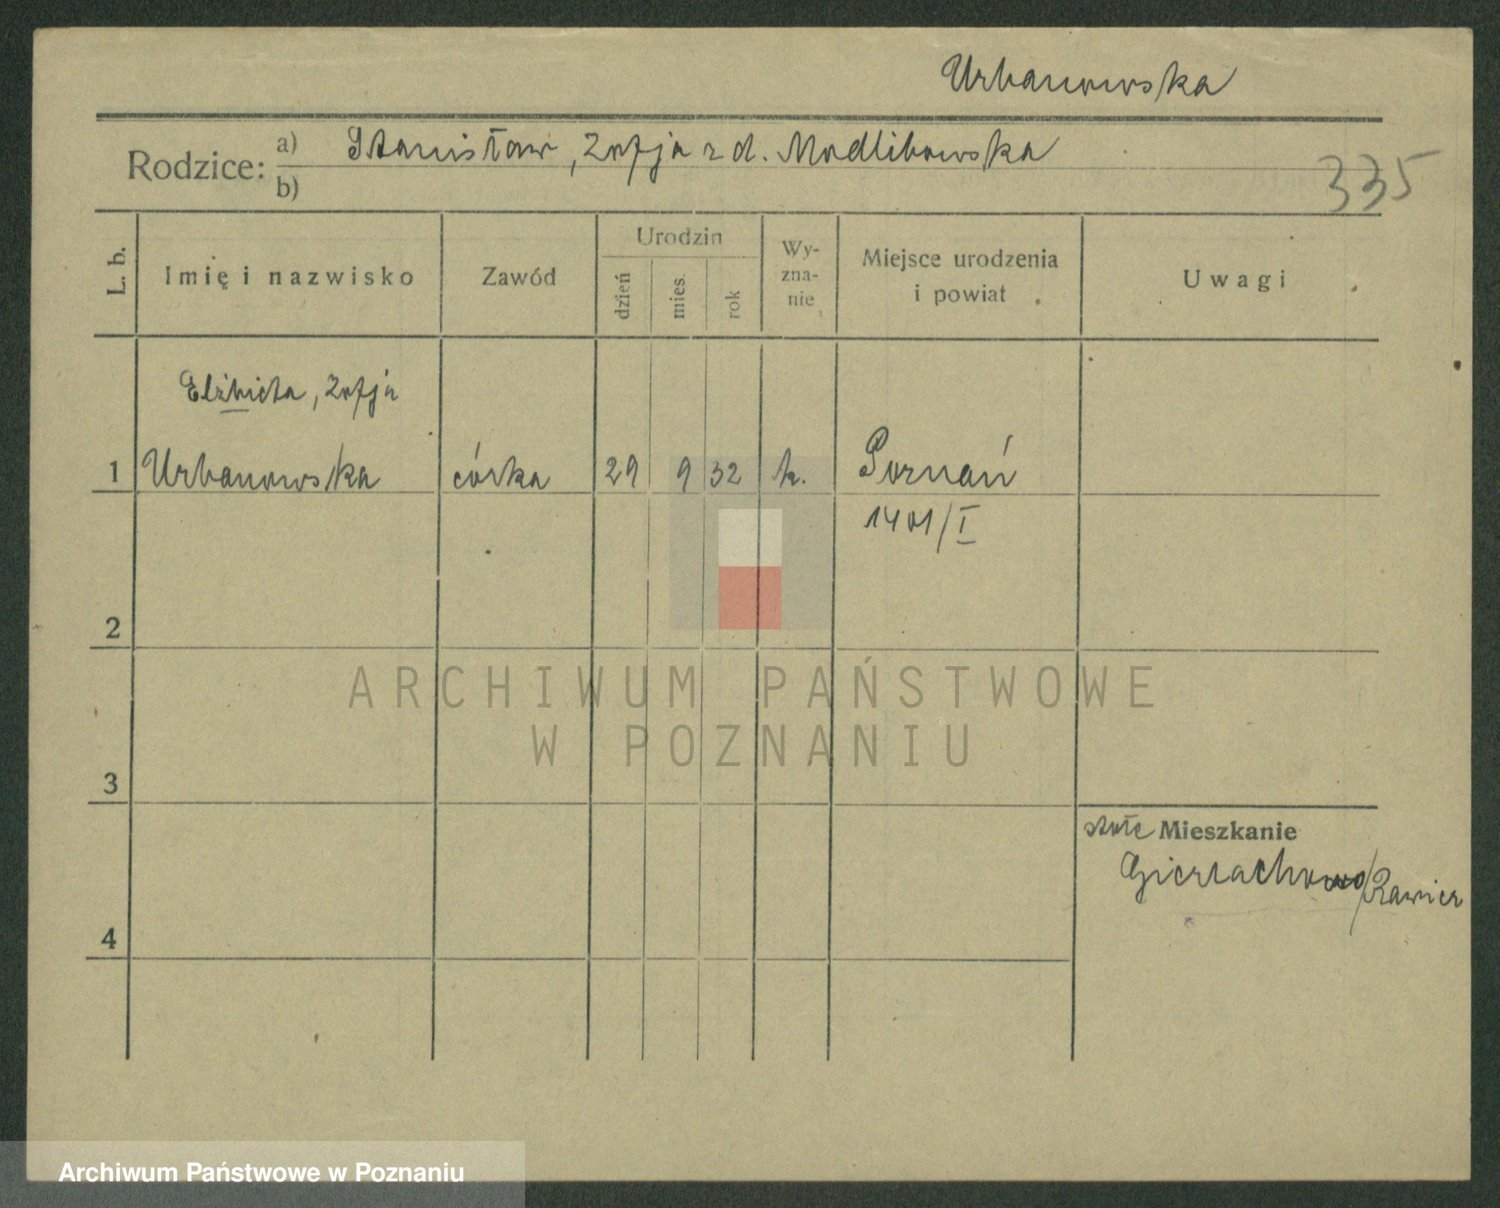 Urbanowska
Rodzice: a) Stanisław, Zofja z d. Modlibowska
b)
335
L. b.
Imię i nazwisko
Zawód
Urodzin
dzień
mies.
rok
Wy-
zna-
nie
Miejsce urodzenia
i powiat
Uwagi
Elżbieta, Zofja
1 Urbanowska córka 29 9 32 k. Poznań
1401/I
2
ARCHIWUM PAŃSTWOWE
W POZNANIU
3
stałe Mieszkanie
Gierłachowo/Rawicz
4
Archiwum Państwowe w Poznaniu